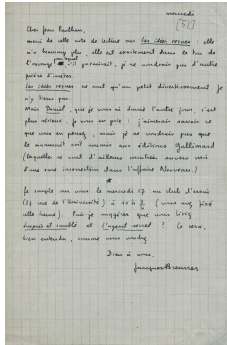 mercredi
[51]
Cher Jean Paulhan,
merci de cette note de lecture sur Les idées reçues : elle
m'a beaucoup plu, elle est exactement dans le ton de
l'ouvrage paraissait, je ne voudrais pas d'autre
prière d'insérer.
Les idées reçues ne sont qu'un petit divertissement, je
n'y tiens pas.
Mais Daniel, que je vous ai donné l'autre jour, c'est
plus sérieux, je vous en prie : j'aimerais savoir ce
que vous en pensez, mais je ne voudrais pas que
le manuscrit soit soumis aux éditions Gallimard
(lesquelles se sont d'ailleurs montrées envers moi
d'une rare incorrection dans l'affaire Nouveau.)
*
Je compte sur vous le mercredi 27 au club d'essai
(37 rue de l'Université) à 11 h (vous avez fixé
cette heure). Puis-je suggérer que vous lisiez
et l'agent secret ? Ce sera,
bien entendu, comme vous voudrez
Bien à vous,
Jacques Brenner